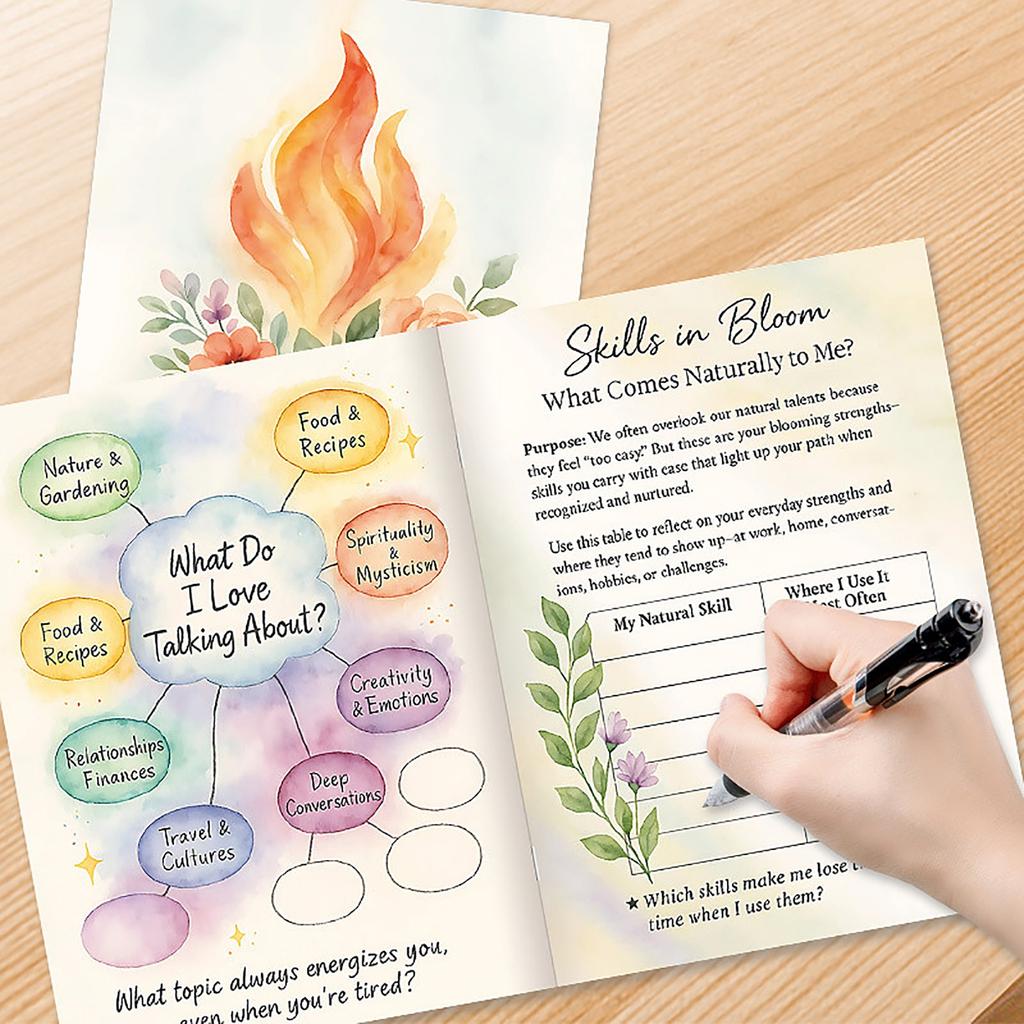 What Do
I Love
Talking About?
Nature &
Gardening
Food &
Recipes
Spirituality
&
Mysticism
Food &
Recipes
Creativity
& Emotions
Relationships
Finances
Deep
Conversations
Travel &
Cultures
What topic always energizes you,
even when you're tired?
Skills in Bloom
What Comes Naturally to Me?
Purpose: We often overlook our natural talents because
they feel "too easy." But these are your blooming strengths–
skills you carry with case that light up your path when
recognized and nurtured.
Use this table to reflect on your everyday strengths and
where they tend to show up–at work, home, conversat-
ions, hobbies, or challenges.
My Natural Skill
Where I Use It
Often
★ Which skills make me lose
time when I use them?